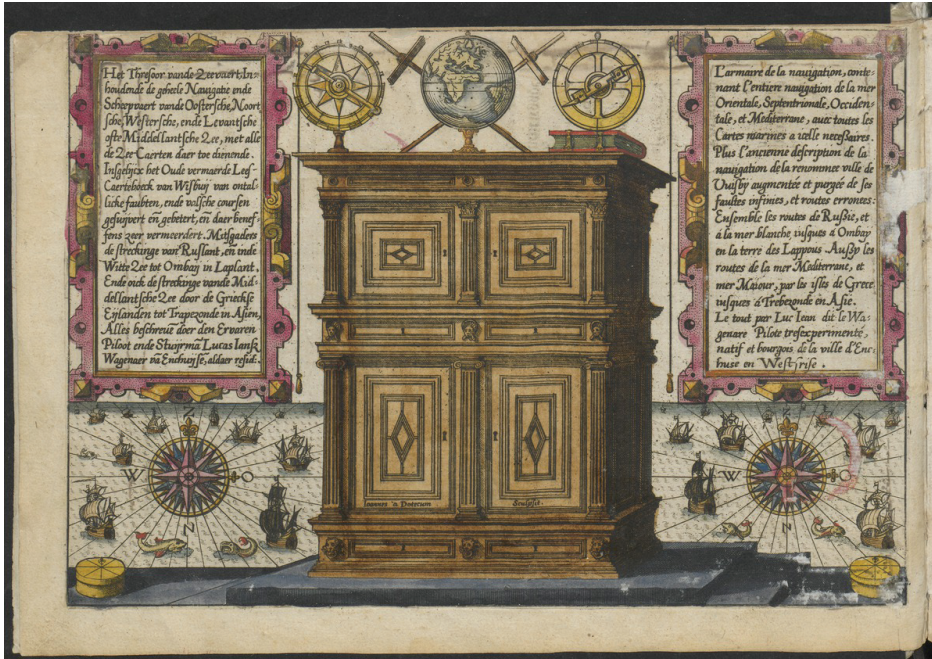 Het Thresoor vande Zeevaert, In=
houdende de geheele Navigatie ende
Scheepvaert vande Oostersche, Noort
sche, Westersche, ende Levantsche
ofte Middellantsche Zee, met alle
de Zee-Caerten daer toe dienende.
Insgelijcx het Oude vermaerde Lees-
Caerteboeck van Wisbuij van ontal-
licke fauten, ende valsche coursen
gesuijvert en̄ gebetert, en̄ daer benef-
fens zeer vermeerdert. Mitsgaders
de streckinge van Ruslant, en̄ inde
Witte Zee tot Ombaij in Laplant.
Ende oick de streckinge vande Mid-
dellantsche Zee door de Grieckse
Eijlanden tot Trapezonde in Asien,
Alles beschreuē door den Ervaren
Piloot ende Stuijrmā Lucas Iansz
Wagenaer vā Enchuijse, aldaer resid:.
L'armaire de la nauigation, conte=
nant l'entiere nauigation de la mer
Orientale, Septentrionale, Occiden=
tale, et Mediterrane, auec toutes les
Cartes marines a icelle necessaires.
Plus l'ancienne description de la
nauigation de la renommee ville de
Wisby augmentée et purgée de ses
faultes infinies, et routes errontes:
Ensemble les routes de Russie, et
á la mer blanche iusques á Ombay
en la terre des Lappous. Aussy les
routes de la mer Mediterrane, et
mer Maiour, par les isles de Grece
iusques á Trebezonde en Asie.
Le tout par Luc Iean dit le Wa=
genare Pilote tresexperimenté,
natif et bourgois de la ville d'Enc=
huse en Westfrise.
N
W O
Z
N
W O
Z
Ioannes a Doetecum Sculpsit.